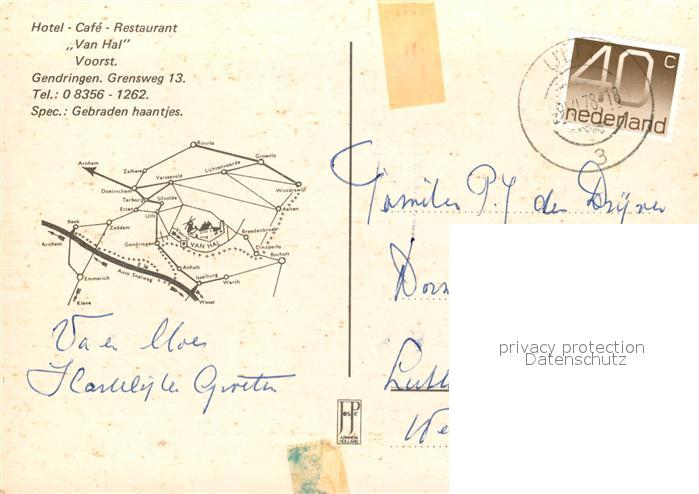 Hotel - Café - Restaurant
„Van Hal"
Voorst.
Gendringen. Grensweg 13.
Tel.: 0 8356 - 1262.
Spec.: Gebraden haantjes.
40 c
nederland
78
3
Arnhem
Ruurlo
Zelhem
Varsseveld
Lichtenvoorde
Groenlo
Doetinchem
Winterswijk
Terborg
Silvolde
Etten
Ulft
Aalten
Beek
Zeddam
VAN HAL
Breedenbroek
Arnhem
Gendringen
Dinxperlo
Bocholt
Anholt
Auto Snelweg
Emmerich
Isselburg
Werth
Kleve
Wesel
Familie P. J den
Pa en Moes
Hartelijke Groeten
JosPé
ARNHEM
HOLLAND
privacy protection
Datenschutz